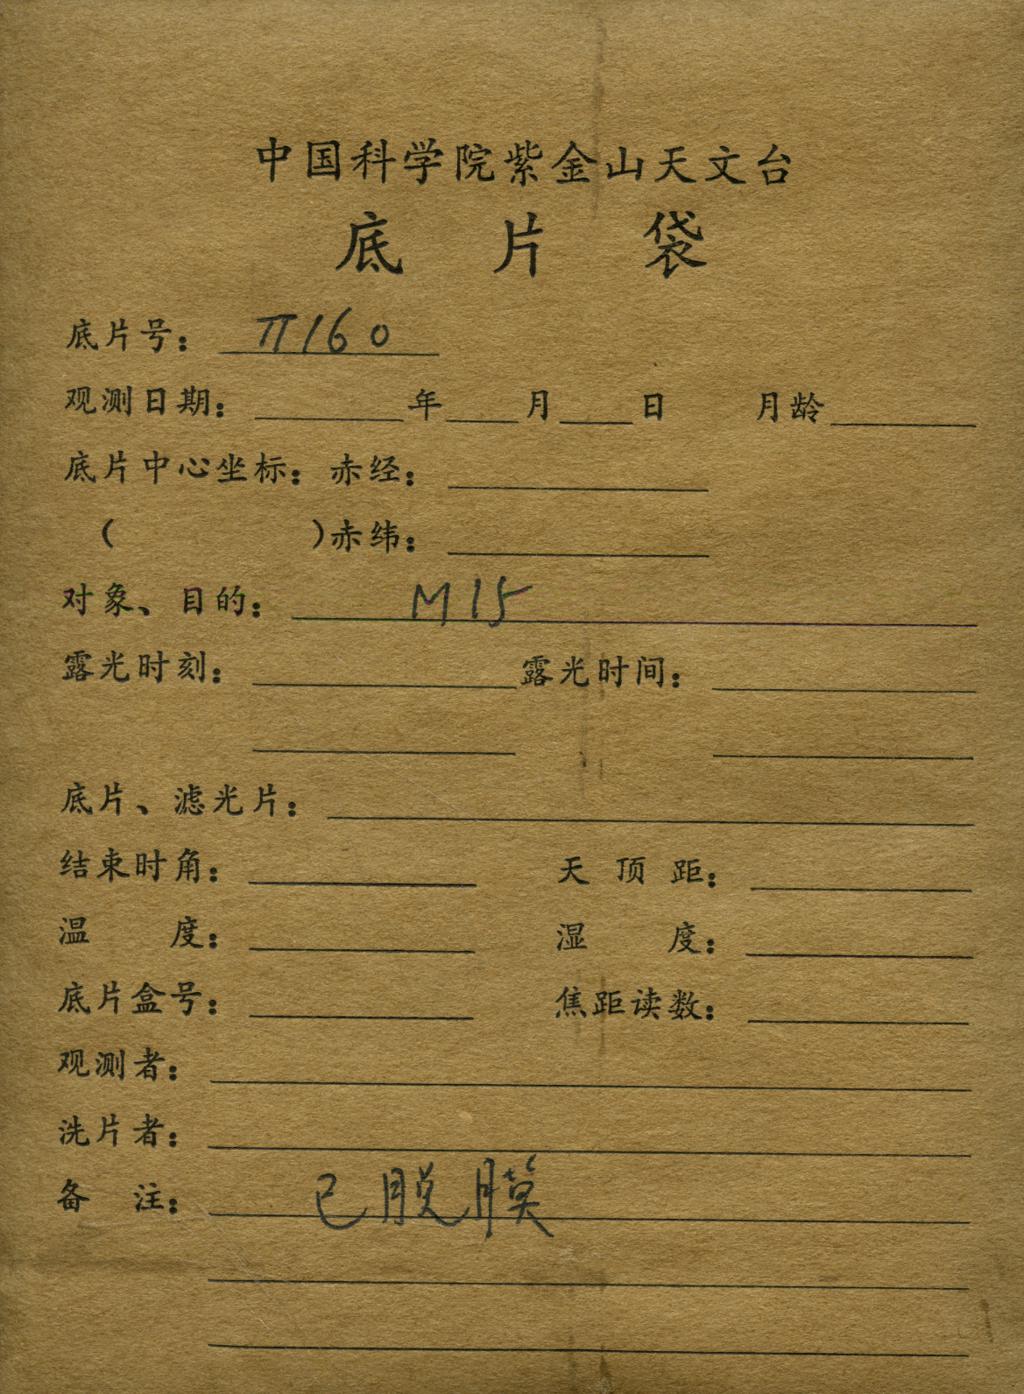 中国科学院紫金山天文台
底片袋
底片号：π160
观测日期：年月日 月龄
底片中心坐标：赤经：
（ ）赤纬：
对象、目的：M15
露光时刻： 露光时间：
底片、滤光片：
结束时角： 天顶距：
温度： 湿度：
底片盒号： 焦距读数：
观测者：
洗片者：
备注：已脱膜